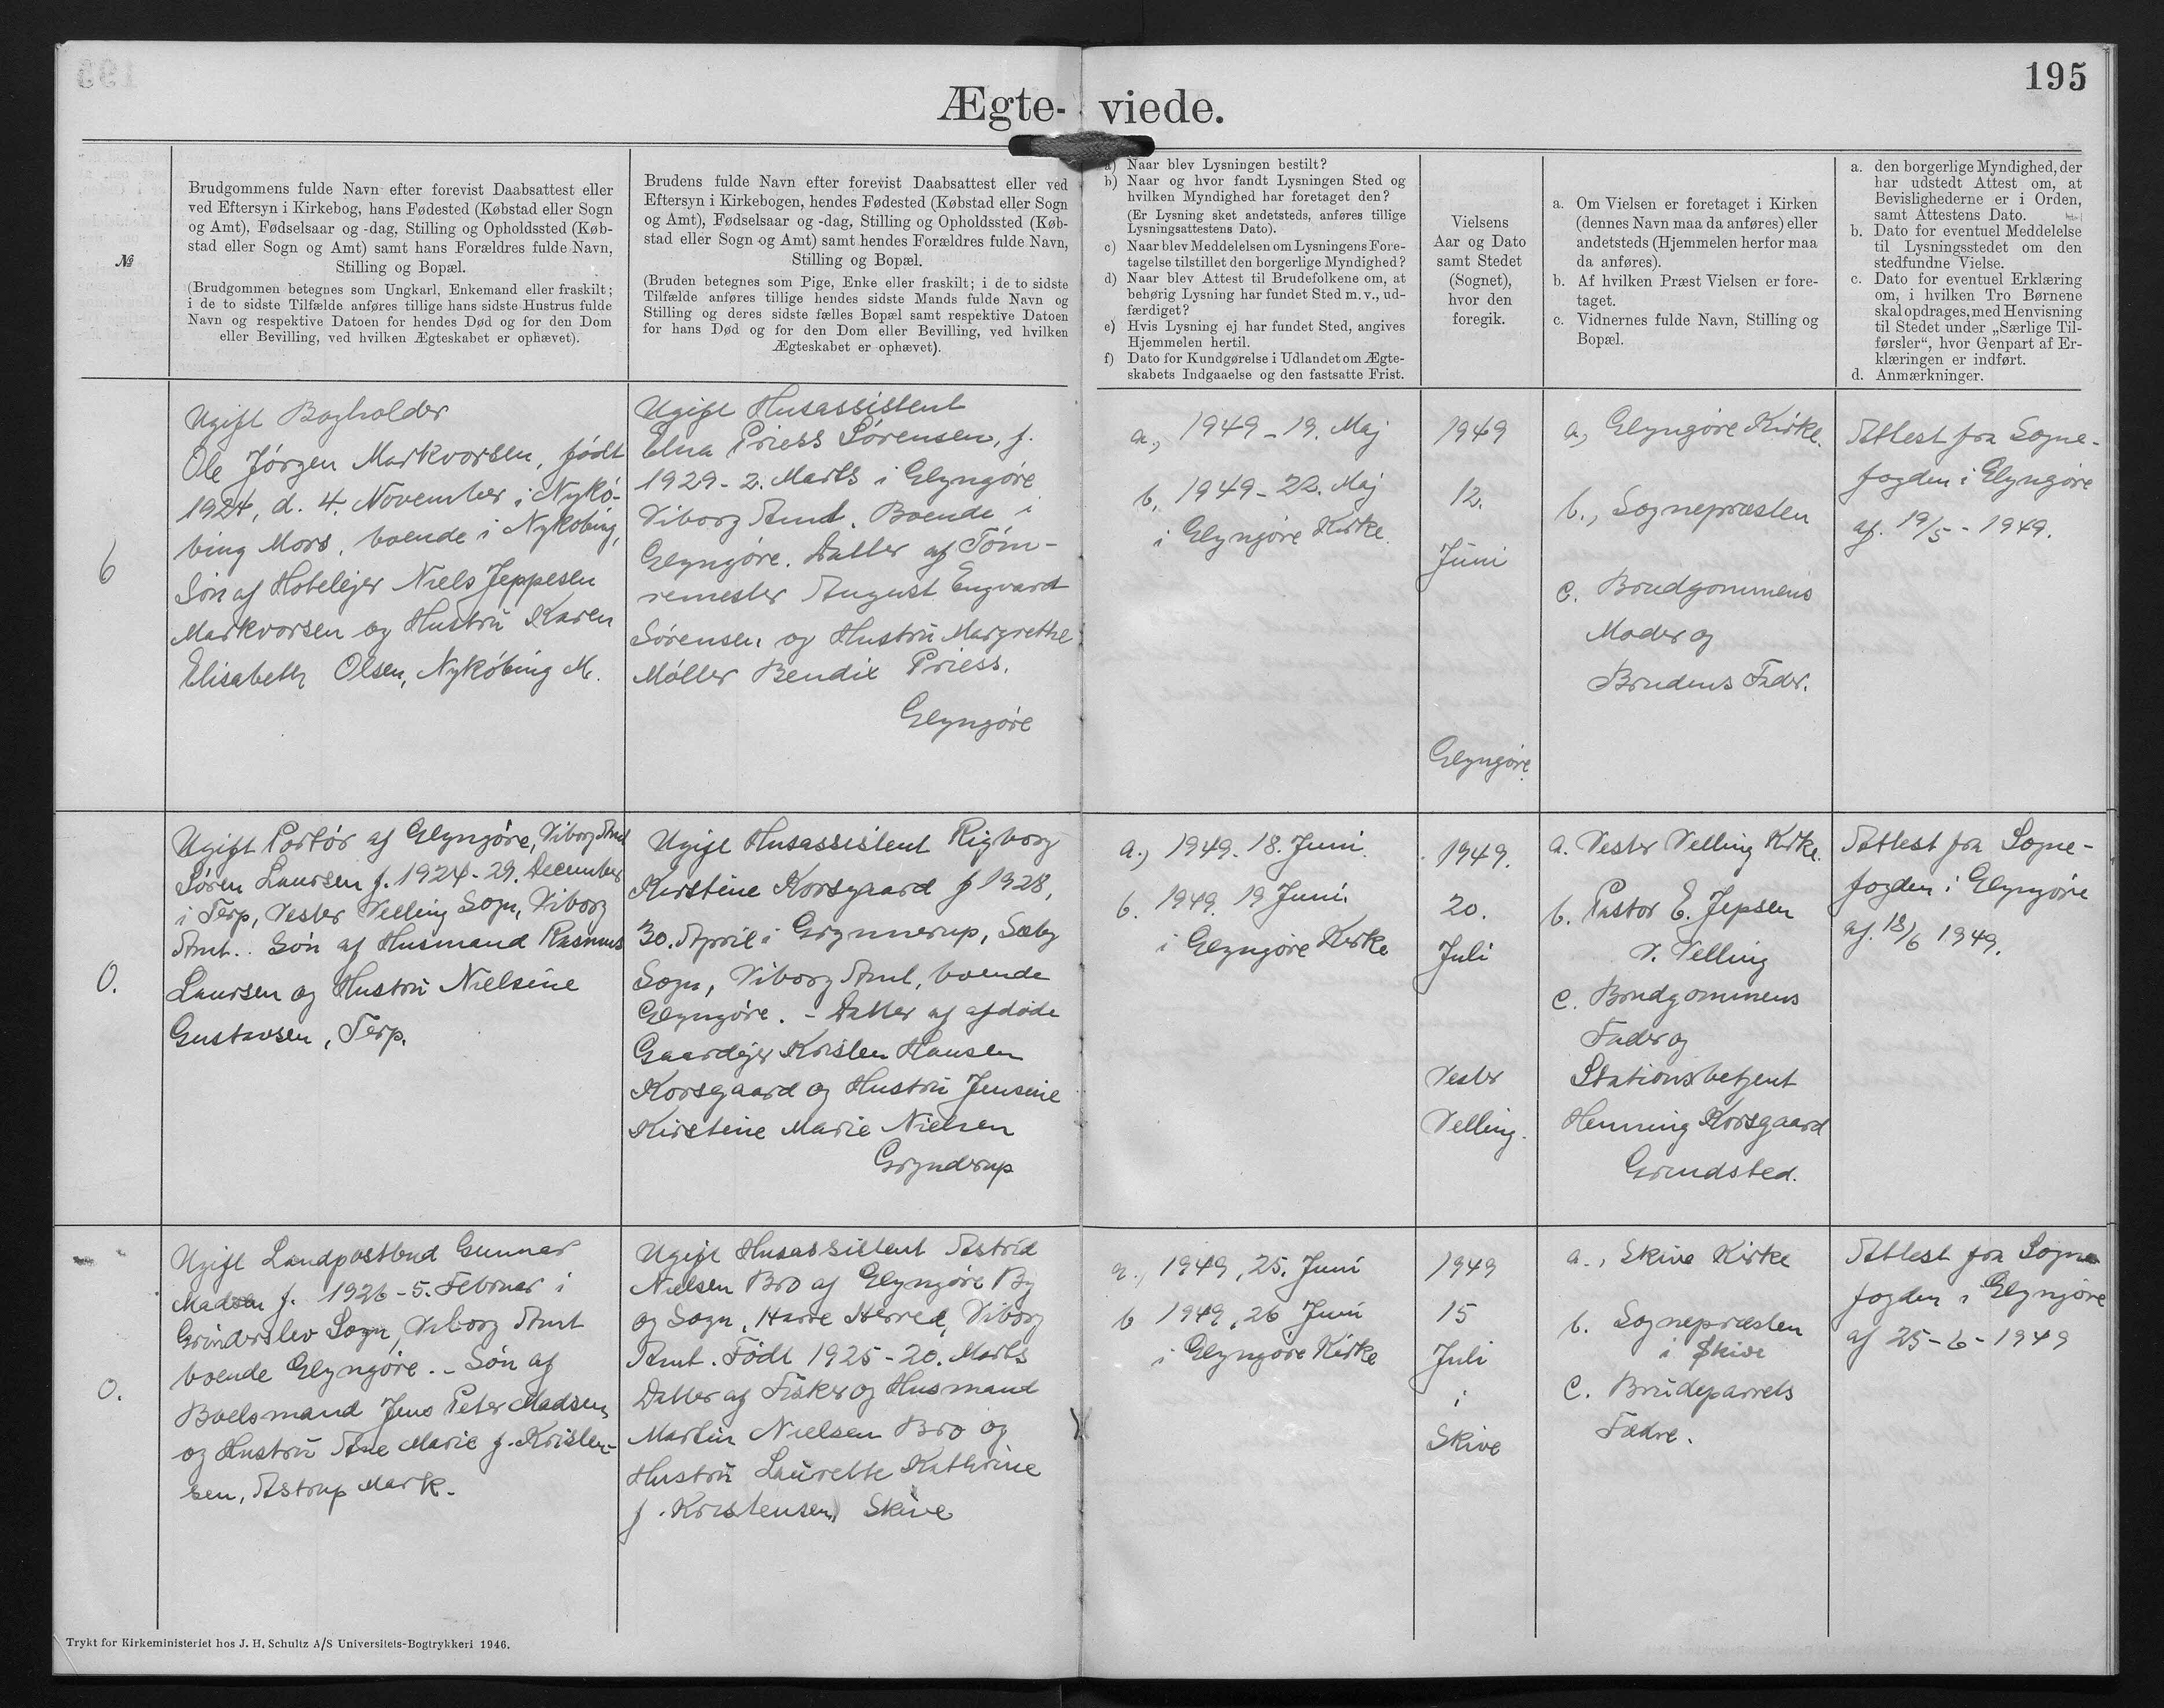 Ægte- viede.
195
№
Brudgommens fulde Navn efter forevist Daabsattest eller
ved Eftersyn i Kirkebog, hans Fødested (Købstad eller Sogn
og Amt), Fødselsaar og -dag, Stilling og Opholdssted (Køb-
stad eller Sogn og Amt) samt hans Forældres fulde Navn,
Stilling og Bopæl.
(Brudgommen betegnes som Ungkarl, Enkemand eller fraskilt;
i de to sidste Tilfælde anføres tillige hans sidste Hustrus fulde
Navn og respektive Datoen for hendes Død og for den Dom
eller Bevilling, ved hvilken Ægteskabet er ophævet).
Brudens fulde Navn efter forevist Daabsattest eller ved
Eftersyn i Kirkebogen, hendes Fødested (Købstad eller Sogn
og Amt), Fødselsaar og -dag, Stilling og Opholdssted (Køb-
stad eller Sogn og Amt) samt hendes Forældres fulde Navn,
Stilling og Bopæl.
(Bruden betegnes som Pige, Enke eller fraskilt; i de to sidste
Tilfælde anføres tillige hendes sidste Mands fulde Navn og
Stilling og deres sidste fælles Bopæl samt respektive Datoen
for hans Død og for den Dom eller Bevilling, ved hvilken
Ægteskabet er ophævet).
a) Naar blev Lysningen bestilt?
b) Naar og hvor fandt Lysningen Sted og
hvilken Myndighed har foretaget den?
(Er Lysning sket andetsteds, anføres tillige
Lysningsattestens Dato).
c) Naar blev Meddelelsen om Lysningens Fore-
tagelse tilstillet den borgerlige Myndighed?
d) Naar blev Attest til Brudefolkene om, at
behørig Lysning har fundet Sted m. v., ud-
færdiget?
e) Hvis Lysning ej har fundet Sted, angives
Hjemmelen hertil.
f) Dato for Kundgørelse i Udlandet om Ægte-
skabets Indgaaelse og den fastsatte Frist.
Vielsens
Aar og Dato
samt Stedet
(Sognet),
hvor den
foregik.
a. Om Vielsen er foretaget i Kirken
(dennes Navn maa da anføres) eller
andetsteds (Hjemmelen herfor maa
da anføres).
b. Af hvilken Præst Vielsen er fore-
taget.
c. Vidnernes fulde Navn, Stilling og
Bopæl.
a. den borgerlige Myndighed, der
har udstedt Attest om, at
Bevislighederne er i Orden,
samt Attestens Dato.
b. Dato for eventuel Meddelelse
til Lysningsstedet om den
stedfundne Vielse.
c. Dato for eventuel Erklæring
om, i hvilken Tro Børnene
skal opdrages, med Henvisning
til Stedet under „Særlige Til-
førsler“, hvor Genpart af Er-
klæringen er indført.
d. Anmærkninger.
6
Ugift Bogholder
Ole Jörgen Markvorsen, født
1924, d. 4. November i Nykö-
bing Mors, boende i Nykøbing,
Søn af Hotelejer Niels Jeppesen
Markvorsen og Hustru Karen
Elisabeth Olsen, Nykøbing M.
Ugift Husassistent
Elna Priess Sørensen, f.
1929 - 2. Marts i Glyngøre
Viborg Amt. Boende i
Glyngøre. Datter af Töm-
remester August Engvard
Sørensen og Hustru Margrethe
Møller Bendix Priess.
Glyngøre
a., 1949 - 19. Maj
b, 1949 - 22. Maj
i Glyngøre Kirke.
1949
12.
Juni
Glyngøre.
a, Glyngøre Kirke.
b., Sognepræsten
c. Brudgommens
Moder og
Brudens Fader.
Attest fra Sogne-
fogden i Glyngøre
af. 19/5 - 1949.
0.
Ugift Portør af Glyngøre, Viborg Amt
Søren Laursen f. 1924 - 29. December
i Terp, Vester Velling Sogn, Viborg
Amt.. Søn af Husmand Rasmus
Laursen og Hustru Nielsine
Gustavsen, Terp.
Ugift Husassistent Rigborg
Kirstine Korsgaard f 1928,
30. April i Grynnerup, Sæby
Sogn, Viborg Amt, boende
Glyngøre. - Datter af afdøde
Gaardejer Kristen Hansen
Korsgaard og Hustru Jensine
Kirstine Marie Nielsen
Grynderup
a.) 1949. 18. Juni.
b. 1949. 19 Juni.
i Glyngøre Kirke
1949.
20.
Juli
Vester
Velling.
a. Vester Velling Kirke.
b. Pastor E. Jepsen
V. Velling
c. Brudgommens
Fader og
Stationsbetjent
Henning Korsgaard
Grindsted.
Attest fra Sogne-
fogden i Glyngøre
af. 18/6 1949.
0.
Ugift Landpostbud Gunnar
Madsen f. 1926 - 5. Februar i
Grinderslev Sogn, Viborg Amt
boende Glyngøre. - Søn af
Boelsmand Jens Peter Madsen
og Hustru Ane Marie f. Kristen-
sen, Astrup Mark.
Ugift Husassistent Astrid
Nielsen Bro af Glyngøre By
og Sogn, Harre Herred, Viborg
Amt. Født 1925 - 20. Marts
Datter af Fisker og Husmand
Martin Nielsen Bro og
Hustru Laurette Kathrine
f. Kristensen, Skive
a., 1949, 25. Juni
b 1949, 26 Juni
i Glyngøre Kirke
1949
15
Juli
i
Skive
a., Skive Kirke
b. Sognepræsten
i Skive
c. Brudeparrets
Fædre.
Attest fra Sogne
fogden i Glyngøre
af 25 - 6 - 1949
Trykt for Kirkeministeriet hos J. H. Schultz A/S Universitets-Bogtrykkeri 1946.